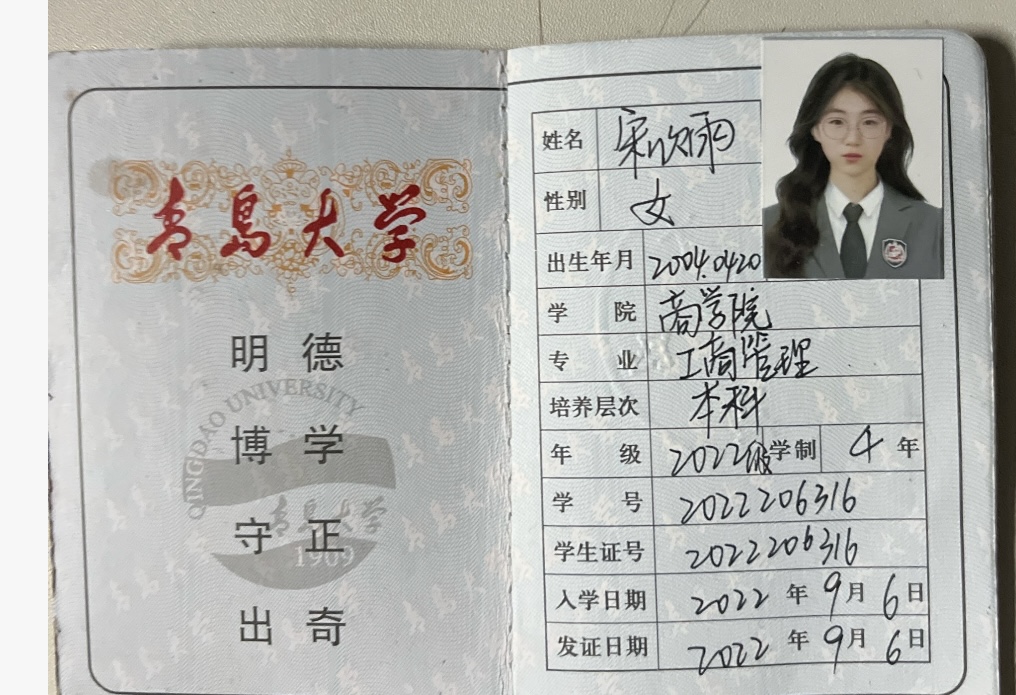 青岛大学
明德
博学
守正
出奇
QINGDAO UNIVERSITY
青岛大学
1909
姓名 宋欣雨
性别 女
出生年月 2004.0420
学院 商学院
专业 工商管理
培养层次 本科
年级 2022级 学制 4 年
学号 2022206316
学生证号 2022206316
入学日期 2022 年 9 月 6 日
发证日期 2022 年 9 月 6 日